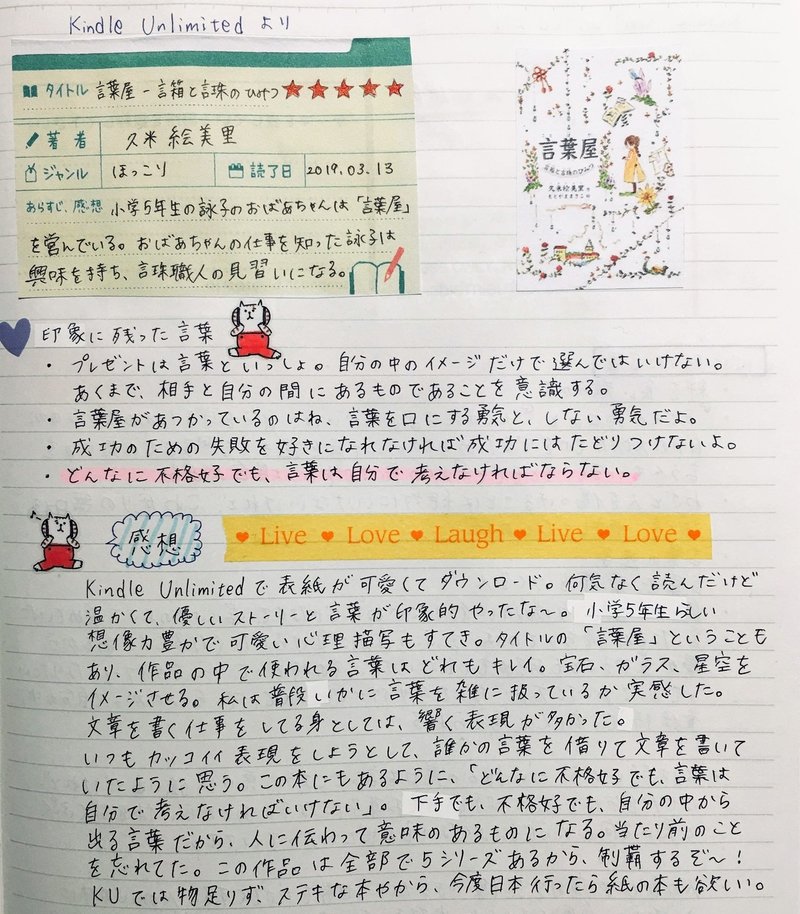 Kindle Unlimited より
タイトル 言葉屋 - 言箱と言珠のひみつ ★★★★★
著者 久米 絵美里
ジャンル ほっこり 読了日 2019.03.13
あらすじ、感想 小学5年生の詠子のおばあちゃんは「言葉屋」
を営んでいる。おばあちゃんの仕事を知った詠子は
興味を持ち、言珠職人の見習いになる。
言葉屋
言箱と言珠のひみつ
久米絵美里 作
もとやままさこ 絵
印象に残った言葉
・ プレゼントは言葉といっしょ。自分の中のイメージだけで選んではいけない。
あくまで、相手と自分の間にあるものであることを意識する。
・ 言葉屋があつかっているのはね、言葉を口にする勇気と、しない勇気だよ。
・ 成功のための失敗を好きになれなければ成功にはたどりつけないよ。
・ どんなに不格好でも、言葉は自分で考えなければならない。
感想
Live ♥ Love ♥ Laugh ♥ Live ♥ Love ♥
Kindle Unlimitedで表紙が可愛くてダウンロード。何気なく読んだけど
温かくて、優しいストーリーと言葉が印象的やったな〜。小学5年生らしい
想像力豊かで可愛い心理描写もすてき。タイトルの「言葉屋」ということも
あり、作品の中で使われる言葉はどれもキレイ。宝石、ガラス、星空を
イメージさせる。私は普段いかに言葉を雑に扱っているか実感した。
文章を書く仕事をしてる身としては、響く表現が多かった。
いつもカッコイイ表現をしようとして、誰かの言葉を借りて文章を書いて
いたように思う。この本にもあるように、「どんなに不格好でも、言葉は
自分で考えなければいけない」。下手でも、不格好でも、自分の中から
出る言葉だから、人に伝わって意味のあるものになる。当たり前のこと
を忘れてた。この作品は全部で5シリーズあるから、制覇するぞ〜！
KUでは物足りず、ステキな本やから、今度日本行ったら紙の本も欲しい。